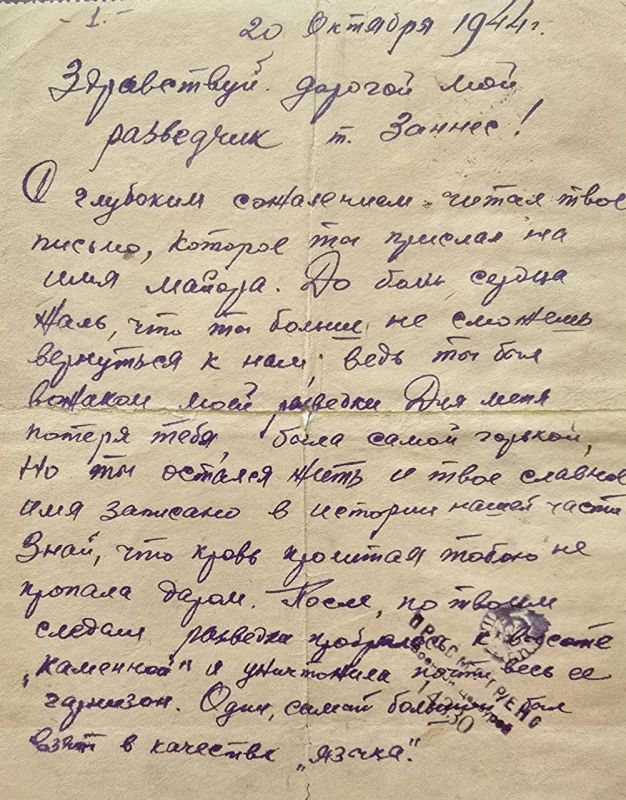 - 1. -
20 Октября 1944 г.
Здравствуй дорогой мой
разведчик т. Заннес!
С глубоким сожалением читал твое
письмо, которое ты прислал на
имя майора. До боли сердца
жаль, что ты больше не сможешь
вернуться к нам, ведь ты был
вожаком моей разведки Для меня
потеря тебя, была самой горькой,
Но ты остался жить и твое славное
имя записано в истории нашей части
Знай, что кровь пролитая тобою не
пропала даром. После, по твоим
следам разведка пробралась к высоте
„Каменной“ и уничтожила почти весь ее
гарнизон. Один, самый большой был
взят в качестве „язычка“.
ПРОСМОТРЕНО
Военной Цензурой
14250